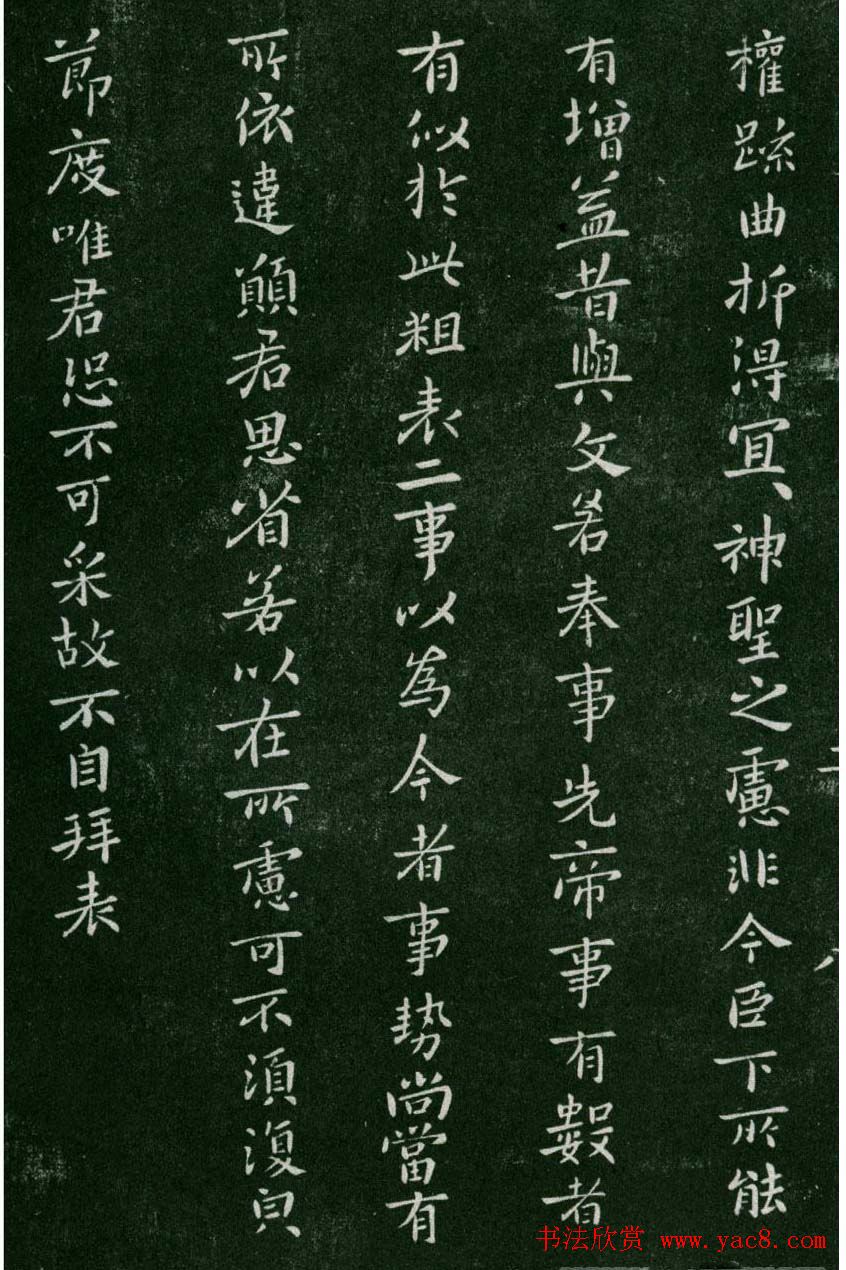 權疏曲折得冝神聖之慮非今臣下所能
有增益昔與文若奉事先帝事有數者
有似於此粗表二事以為今者事勢尚當有
所依違願君思省若以在所慮可不須復皃
節度唯君恐不可采故不自拜表
书法欣赏 www.yac8.com